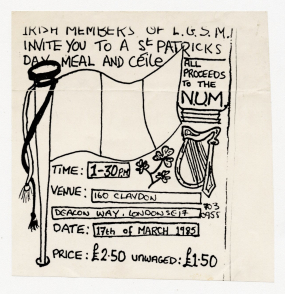 IRISH MEMBERS OF L.G.S.M.
INVITE YOU TO A St PATRICKS
DAY MEAL AND CÉILE
ALL
PROCEEDS
to the
NUM
TIME: 1-30PM
VENUE: 160 CLAYDON
DEACON WAY, LONDON SE17
703
0955
DATE: 17th of MARCH 1985
PRICE: £2.50 UNWAGED: £1.50